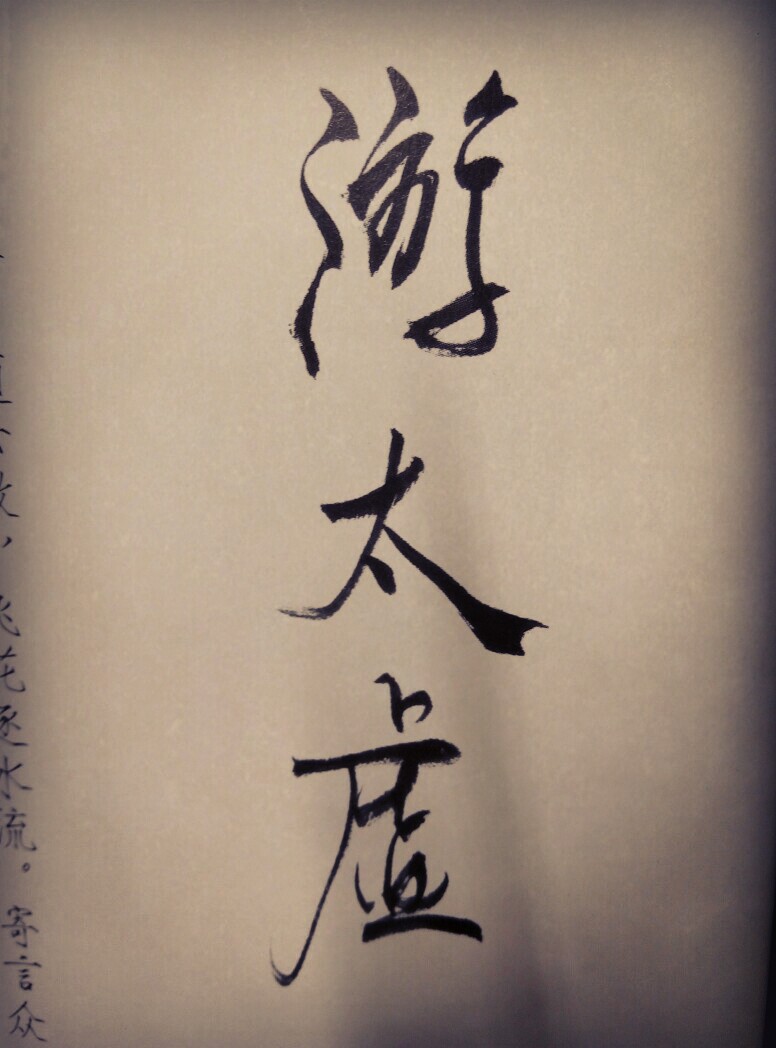 游太虚
飞花逐水流。寄言众